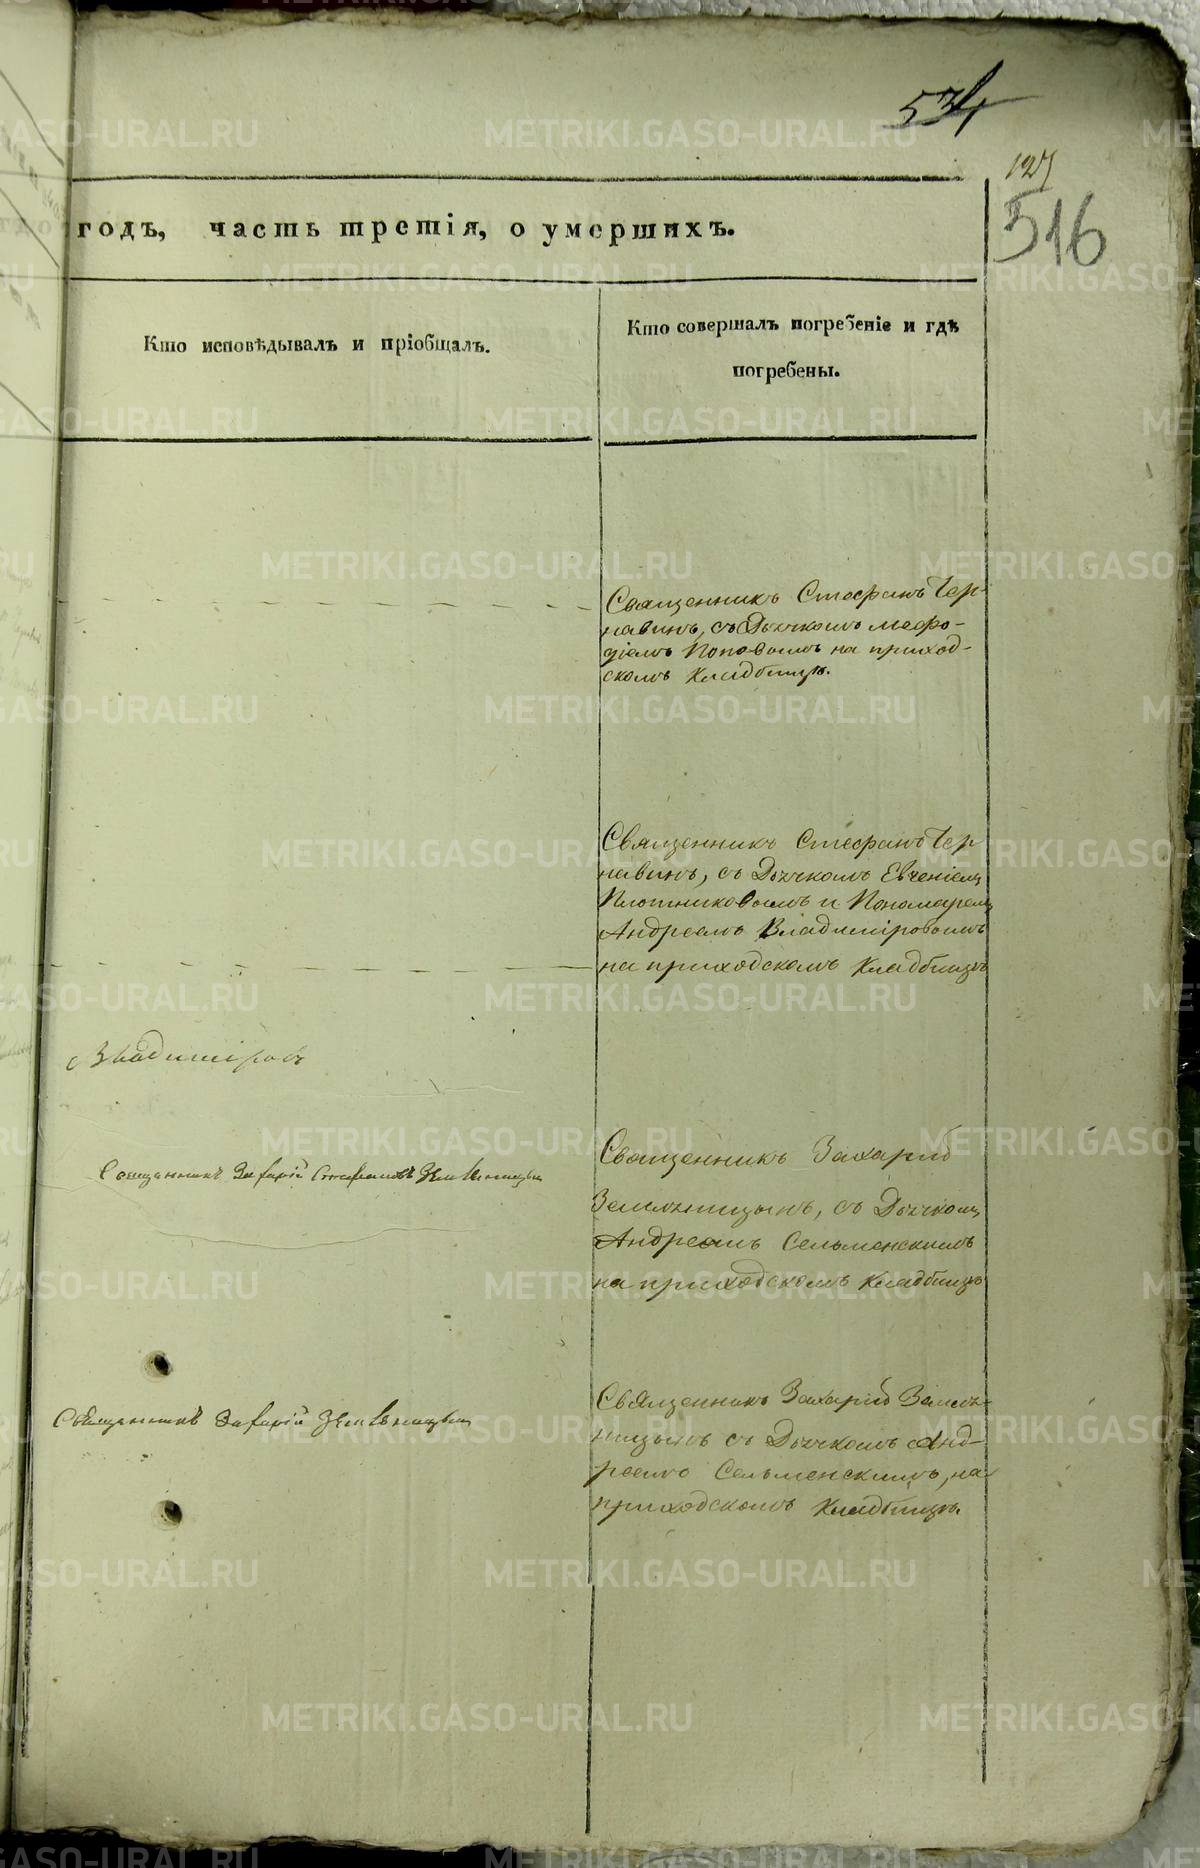 534
127
516
годъ, часть третія, о умершихъ.
Кто исповѣдывалъ и пріобщалъ.
Кто совершалъ погребеніе и гдѣ
погребены.
Священникъ Стефанъ Чер-
навинъ, съ Дьячкомъ Мефо-
діемъ Поповымъ на приход-
скомъ Кладбищѣ.
Священникъ Стефанъ Чер
навинъ, съ Дьячкомъ Евгеніемъ
Плотниковымъ и Пономаремъ
Андреемъ Владиміровымъ
на приходскомъ Кладбищѣ
Владиміровъ
Священникъ Захарій Стефановъ Земляницынъ
Священникъ Захарій
Земляницынъ, съ Дьячкомъ
Андреемъ Сельменскимъ
на приходскомъ Кладбищѣ
Священникъ Захарій Земляницынъ
Священникъ Захарій Земля-
ницынъ съ Дьячкомъ Анд-
реемъ Сельменскимъ, на
приходскомъ Кладбищѣ.
METRIKI.GASO-URAL.RU